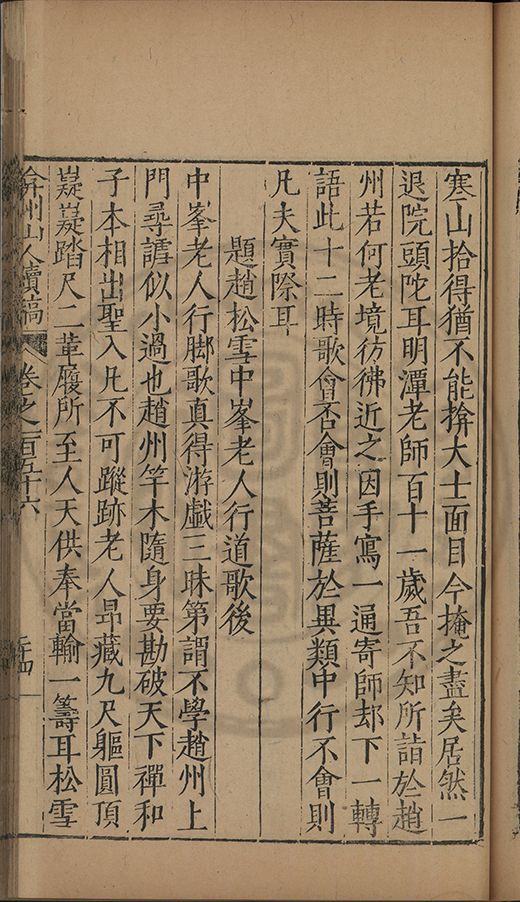 寒山拾得猶不能揜大士面目今掩之盡矣居然一
退院頭陀耳明潭老師百十一歲吾不知所詣於趙
州若何老境彷彿近之因手寫一通寄師却下一轉
語此十二時歌會否會則菩薩於異類中行不會則
凡夫實際耳
題趙松雪中峯老人行道歌後
中峯老人行脚歌真得游戲三昧第謂不學趙州上
門尋謔似小過也趙州竿木隨身要勘破天下禪和
子本相出聖入凡不可蹤跡老人昻藏九尺軀圓頂
嶷嶷踏尺二革履所至人天供奉當輸一籌耳松雪
弇州山人續稿 卷之一百五十六 二十四